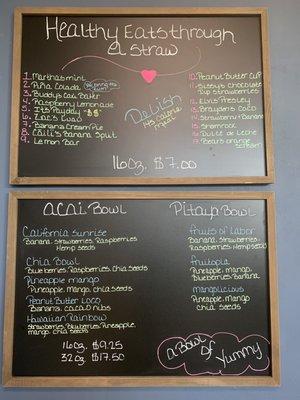 Healthy Eats through
a Straw
1. Marthasmint
2. Piña Colada
3. Buddy's Oat Baker
4. Raspberry Lemonade
5. It's Payday "$$"
6. Zac's Luau
7. Banana Cream Pie
8. Cali's Banana Split
9. Lemon Bar
Delish
145 calorie
meal
10. Peanut Butter Cup
11. Sissy's Chocolate
Dip Strawberries
12. Elvis Presley
13. Brayden's CoCo
14. Strawberry + Banana
15. Shamrock
16. Dulce de Leche
17. Bears Orange
16oz. $7.00
Acai Bowl
California Sunrise
Banana, Strawberries, Raspberries
Hemp seeds
Chia Bowl
Blueberries, Raspberries, chia seeds
Pineapple mango
Pineapple, mango, chia seeds
Peanut Butter Loco
Bananas, cacao nibs
Hawaiian Rainbow
Strawberries, Blueberries, Pineapple,
mango, chia seeds
16oz $9.25
32oz $17.50
Pitaya Bowl
fruits of Labor
Banana, Strawberries,
Raspberries, Hemp seeds
fruitopia
Pineapple, mango,
Blueberries, Banana
mangolicious
Pineapple, mango
chia seeds
a Bowl
of
Yummy